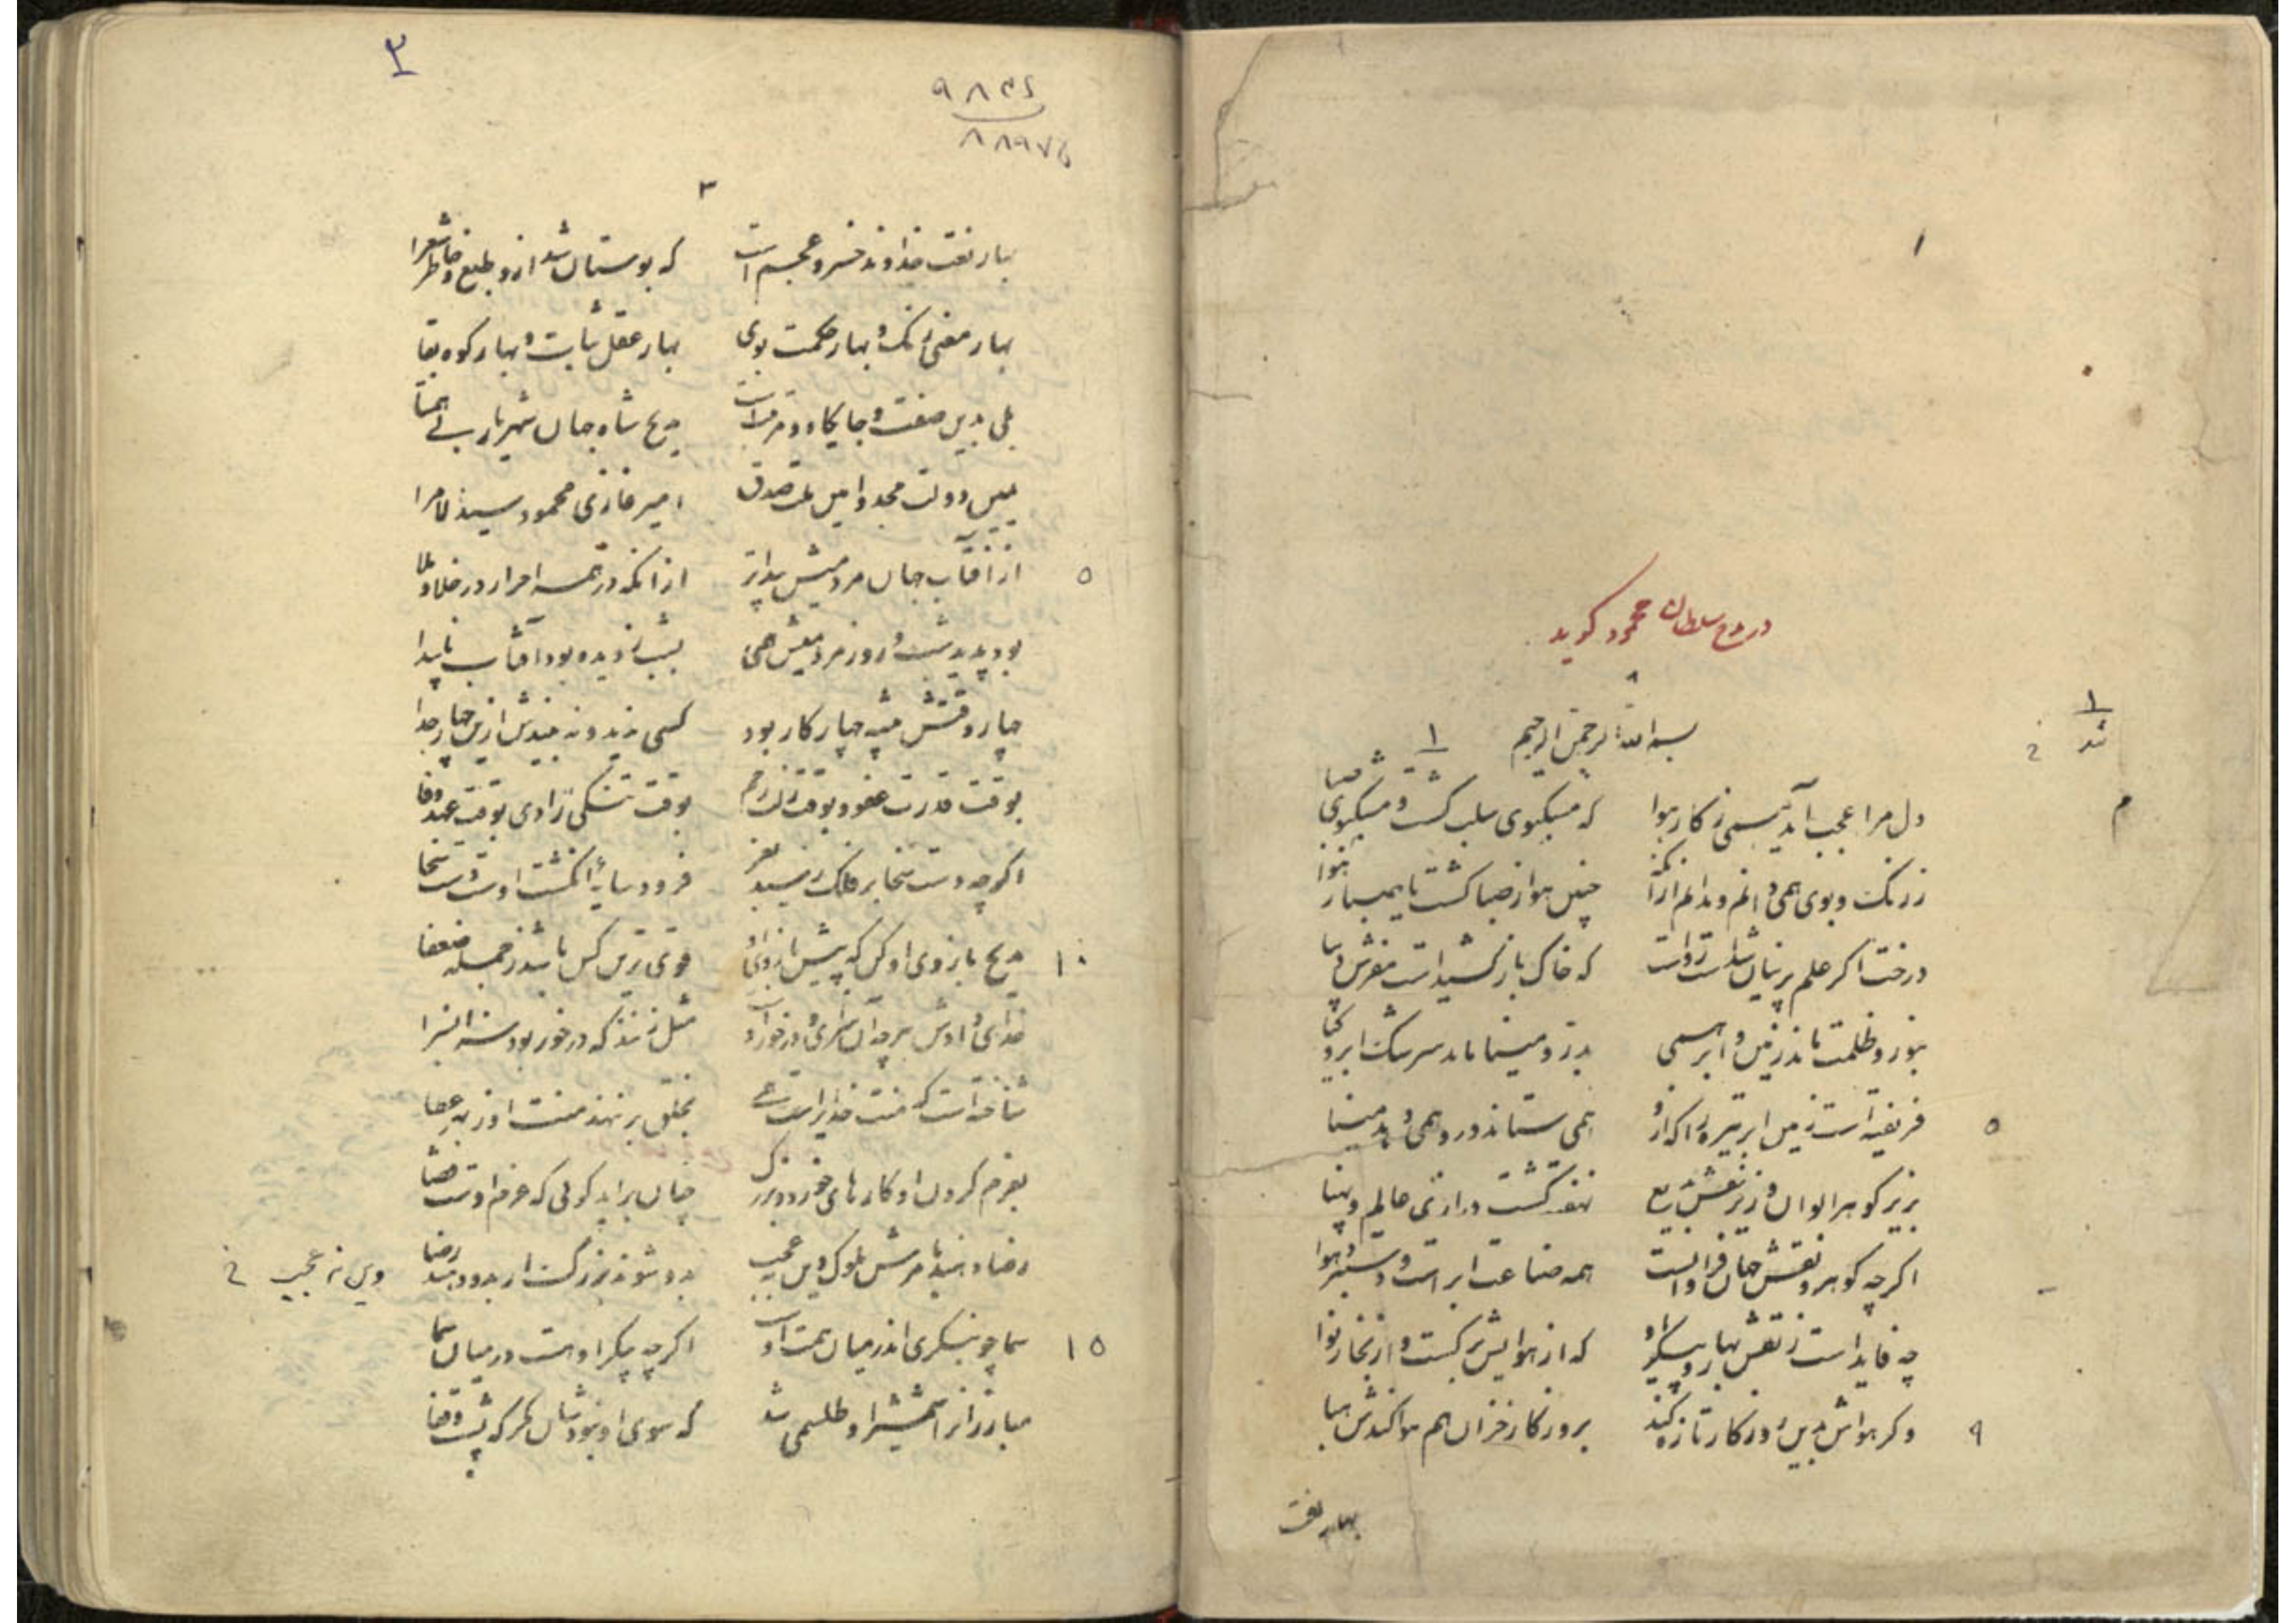 ۱
در مدح سلطان محمود گوید
بسم الله الرحمن الرحیم
۱
دل مرا عجب آید همی ز کار هوا که مشکبوی سلب گشت و مشکبوی صبا
ز رنگ و بوی همی دانم و ندانم ازآنک چنین هوا ز صبا گشت یا صبا ز هوا
درخت اگر علم پرنیان شد است رواست که خاک باز کشیداست مفرش دیبا
بنور و ظلمت ماند زمین و ابر همی بدر و مینا ماند سرشک ابر و گیا
۵ فریفته است زمین ابر تیره را که ازو همی ستاند در و همی دهد مینا
بزیر گوهر الوان و زیر نقش بدیع نهفته گشت درازی عالم و پهنا
اگرچه گوهر و نقش جهان فراوانست همه صناعت ابر است و دستبرد هوا
چه فایداست ز نقش بهار و پیکر او که از هواش بزرگست و از بخار نوا
۹ وگر هواش بدین روزگار تازه کند بروزگار خزان هم هوا کندش هبا
بهار نعت
۲
۳
بهار نعت خداوند خسرو عجم است که بوستان شد ازو طبع و خاطر شعرا
بهار معنی رنگ و بهار حکمت بوی بهار عقل ثبات و بهار کوه بقا
بلی بدین صفت و جایگاه و مرتبت است مدیح شاه جهان شهریار بی همتا
یمین دولت مجد و امین ملت صدق امیر غازی محمود سید الامرا
۵ از آفتاب جهان مردمیش پیداتر از آنکه در همه احرار در خلا و ملا
بود پدید شب و روز مردمیش همی بشب ز دیده بود آفتاب ناپیدا
چهار وقتش پیشه چهار کار بود کسی ندید و نه بیندش ازین چهار جدا
بوقت قدرت عفو و بوقت زلت رحم بوقت تنگی رادی بوقت عهد وفا
اگرچه دست سخا بر فلک رسید بعز فرود سایۀ انگشت اوست دست سخا
۱۰ مدیح بازوی او کن که پیش بازوی او قوی ترین کس باشد ز جمله ضعفا
خدای دادش هرچ آن سزای و درخور اوست مثل زنند که درخور بود سزا بسزا
شناخته است که منت خدایراست همی بخلق بر ننهد منت او ز بهر عطا
بعزم کردن او کارهای خرد و بزرگ چنان براید گوئی که عزم اوست قضا
رضا دهند بامرش ملوک وین عجب بدو شوند بزرگ ار بدو دهند رضا
وین نه عجب
۱۵ سما چو بنگری اندر میان همت اوست اگرچه پیکر او هست در میان سما
مبارزانرا شمشیر او طلسمی شد که سوی او نبود شان مگر که پشت و قفا